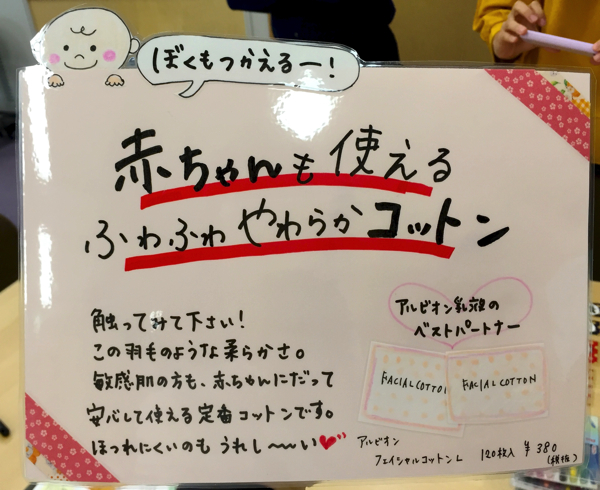 ぼくもつかえるー!
赤ちゃんも使える
ふわふわ やわらか コットン
触ってみて下さい!
この羽ものような柔らかさ。
敏感肌の方も、赤ちゃんにだって
安心して使える定番コットンです。
ほつれにくいのも うれし〜〜い
アルビオン乳液の
ベストパートナー
FACIAL COTTON
FACIAL COTTON
アルビオン
フェイシャルコットン L 120枚入 ¥380
(税抜)